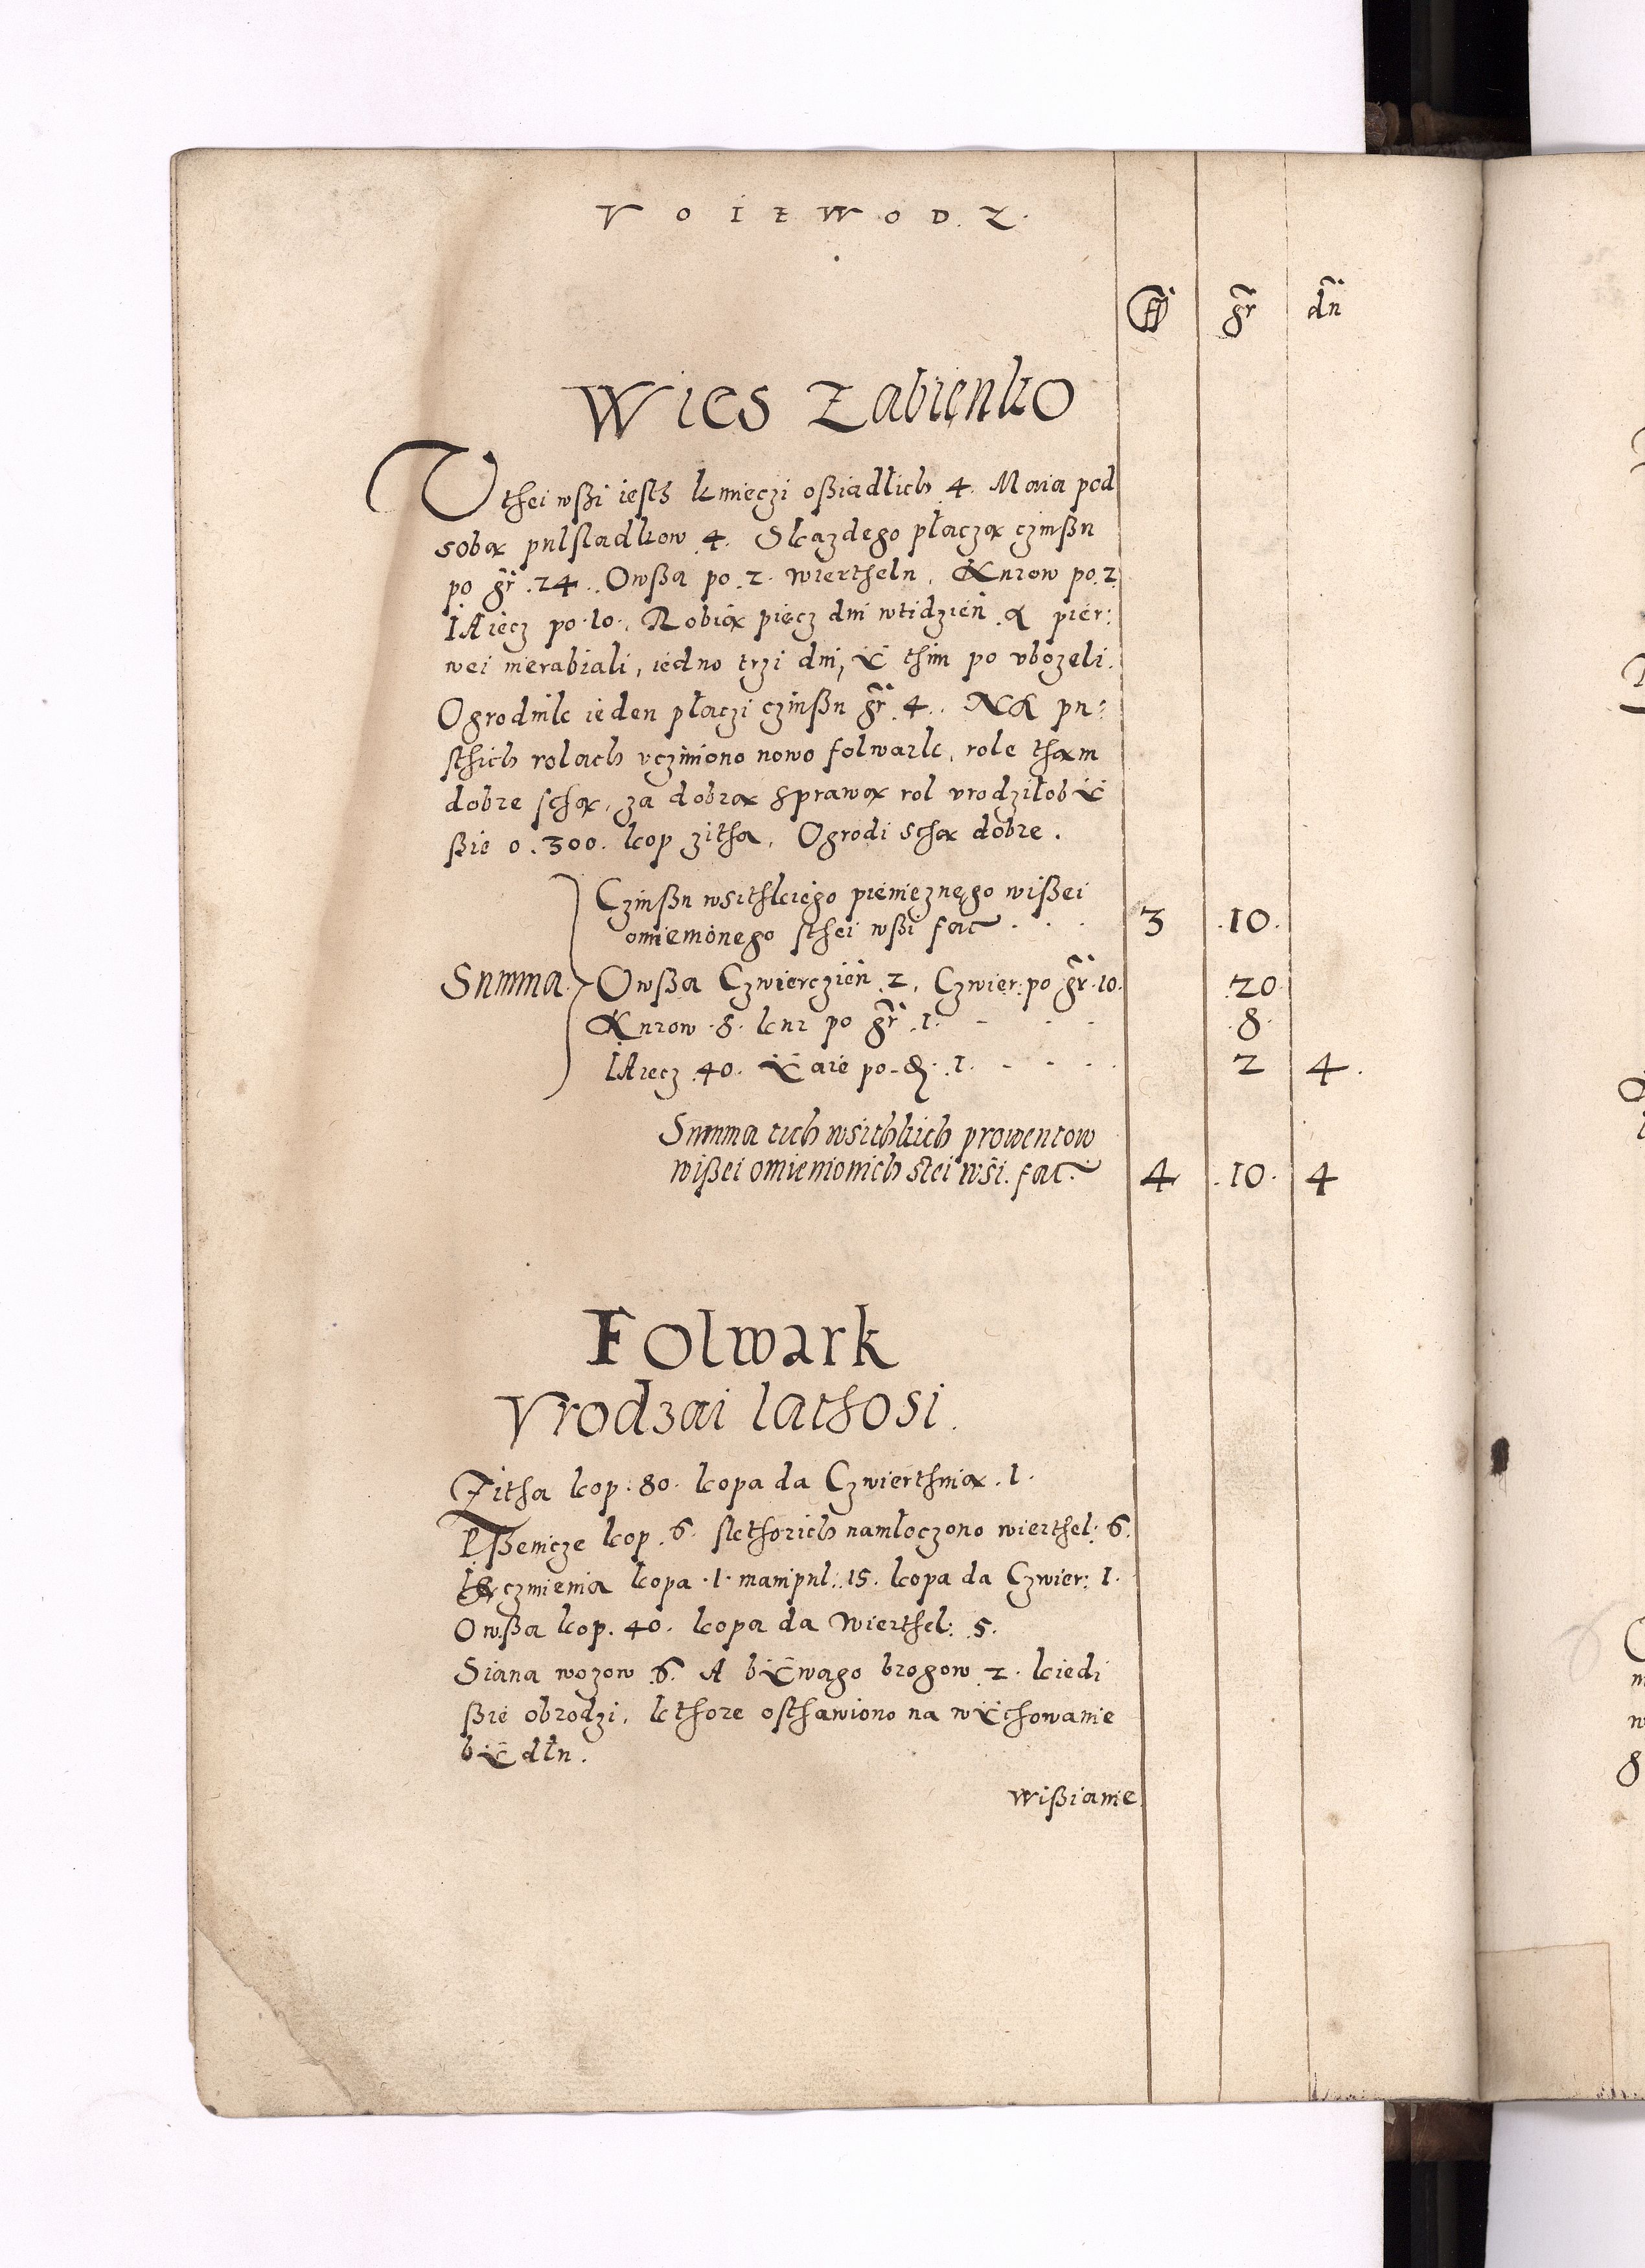 VOIEWODZ.
fl gr dn
Wies Zabienko
W thei wßi iesth kmieczi oßiadlich 4. Maia pod
sobą pulsladkow 4. Skazdego płaczą czinßu
po gr. 24. Owßa po .2. wierthelu. Kurow po .2
IAiecz po .10. Robią piecz dni wtidzien. A pier:
wei nierabiali, iedno trzi dni, ÿ thim po vbozeli.
Ogrodnik ieden płaczi czinßu gr 4. NA pu:
sthich rolach vcziniono nowo folwark, role tham
dobre schą, za dobrą sprawą rol vrodziłobÿ
ßie o .300. kop zitha. Ogrodi schą dobre.
Czinßu wsithkiego pienięznęgo wißei
omienionego sthei wßi fac 3 .10.
Summa Owßa Czwierczien 2. Czwier: po gr .10. 20
Kurow .8. kur po gr .1. 8.
IAiecz .40. ÿaie po d. .1. 2 4.
Summa tich wsithkich prowentow
wißei omienionich stei wsi. fac. 4 .10. 4
Folwark
Vrodzai lathosi.
Zitha kop .80. kopa da Czwierthnią .1.
Pßenicze kop .6. skthorich namłoczono wierthel: 6.
IĘczmienia kopa .1. manipul: 15. kopa da Czwier: 1.
Owßa kop. 40. kopa da Wierthel: 5.
Siana wozow 6. A bÿwago brogow 2. kiedi
ßie obrodzi, kthore osthawiono na wÿchowanie
bÿdłu.
Wißianie